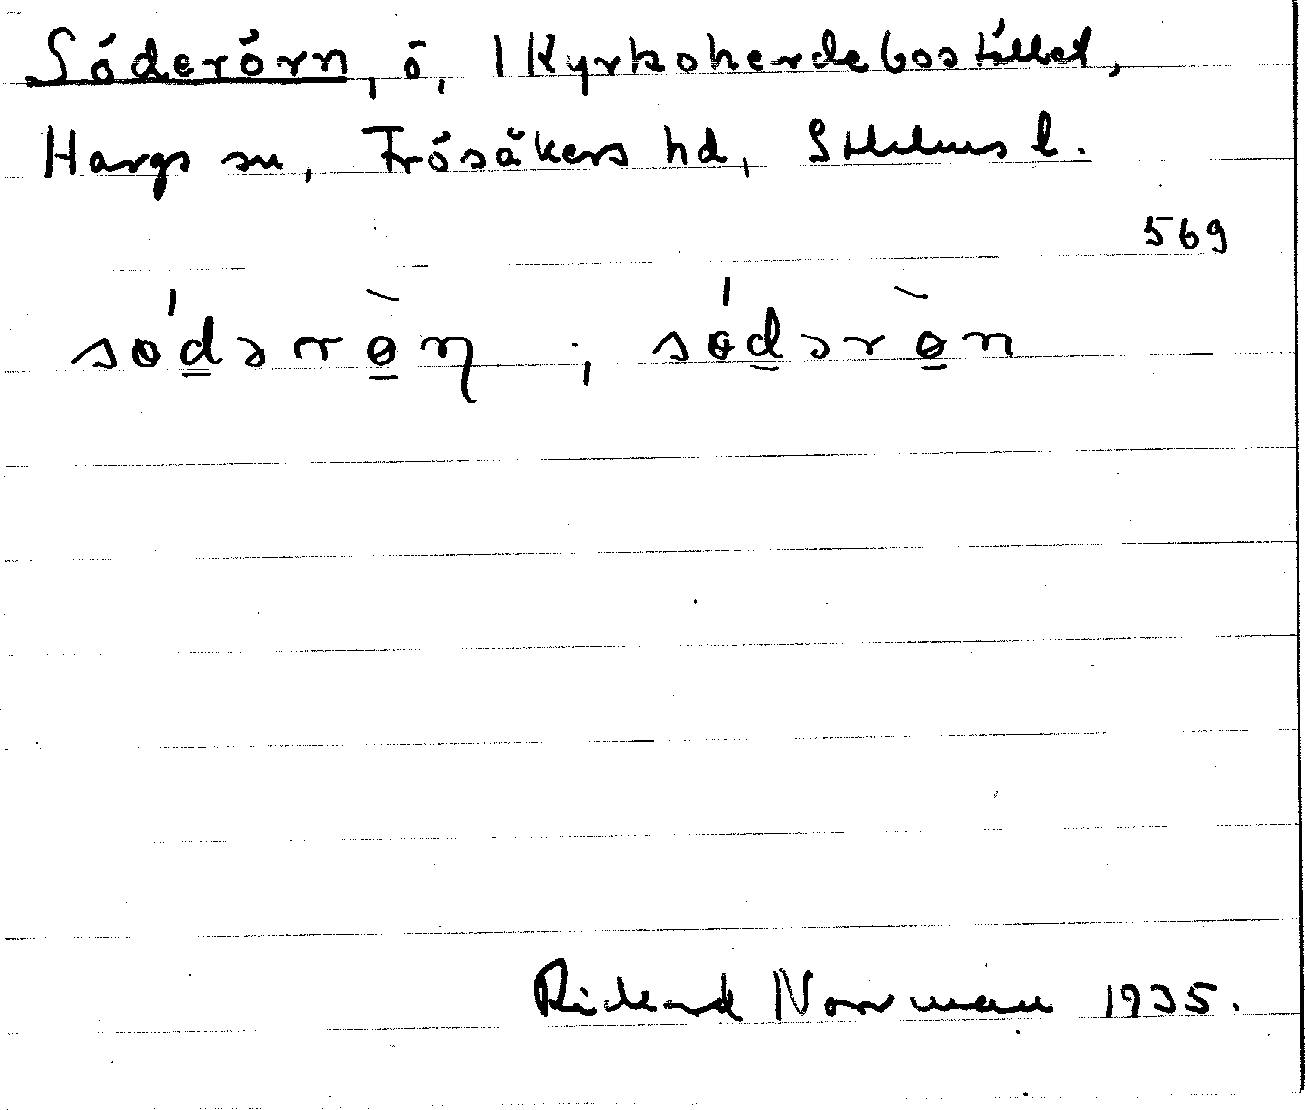 Söderörn, ö, 1 Kyrkoherdebostället,
Hargs sn, Frösåkers hd, Sthlms l.
569
sɵ́dərɵ̀ŋ ; sɵ́dərɵ̀n
Rickard Norrman 1935.